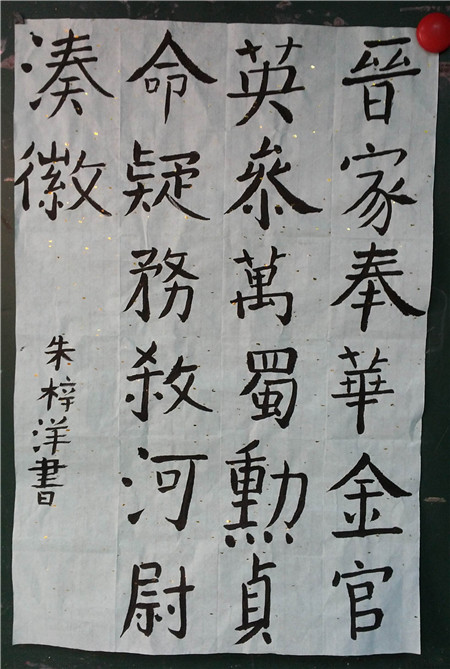 晉家奉華金官
英叅萬蜀勳貞
命疑務敎河尉
湊徽
朱梓洋書